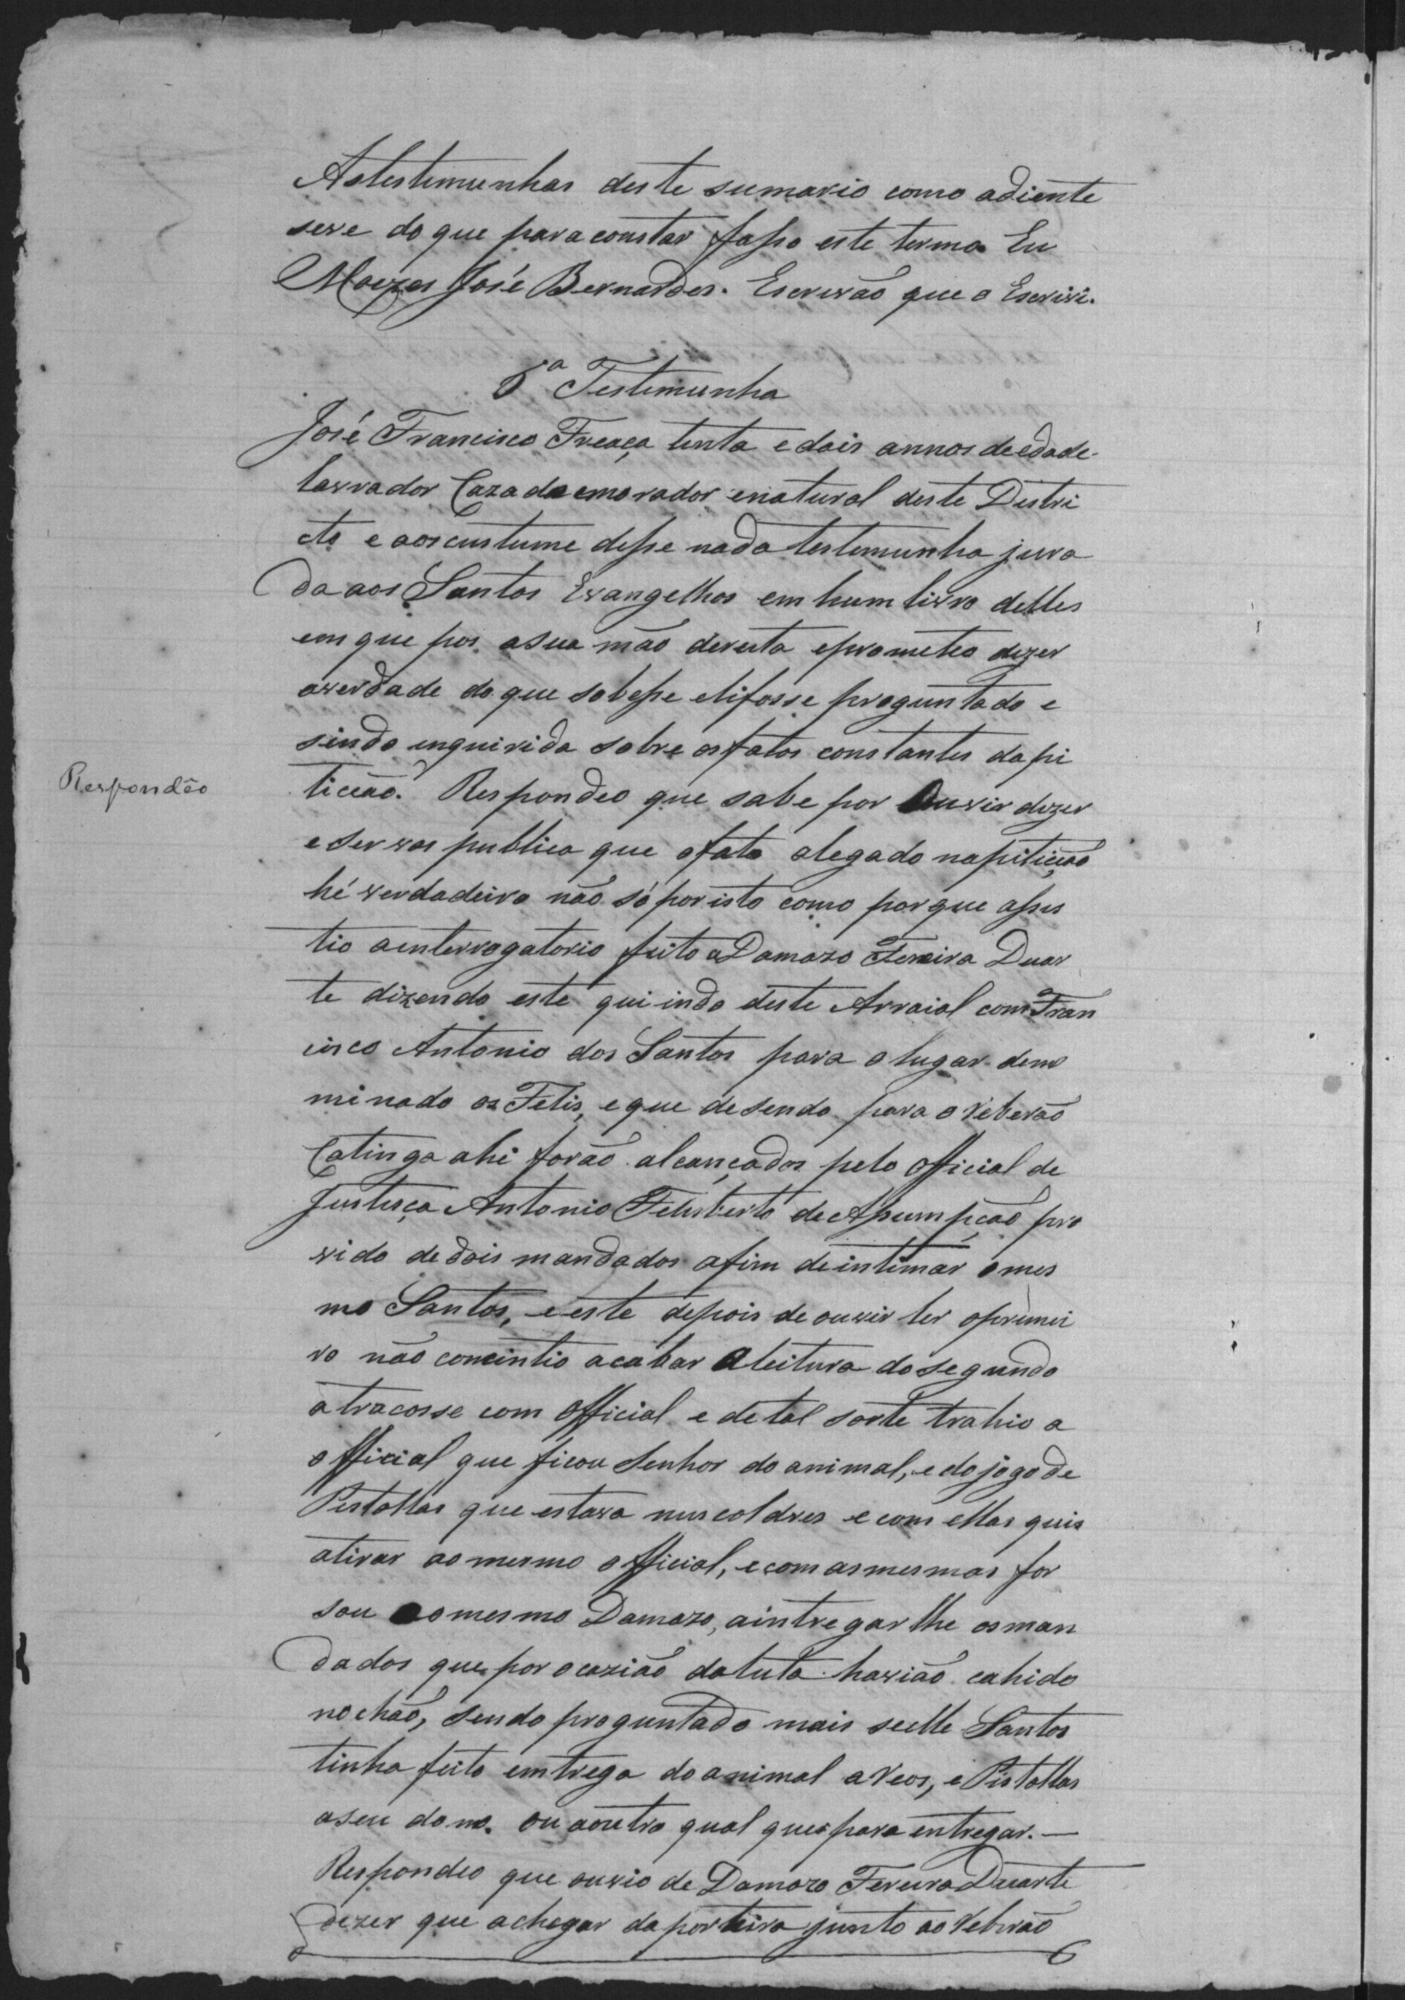 As testemunhas deste sumario como adiente
seve do que para constar fasso este termo Eu
Moezes José Bernardes. Escrivão que o Escrivi.
6ª Testemunha
José Francisco Freaça tinta e dois annos deedade
lavrador Cazado emorador enatural deste Destri
cto e aoscustume desse nada testemunha jura
da aos Santos Evangelhos em hum livro delles
em que pos asua mão dereita eprometeo dizer
averdade do que sobesse elifosse proguntado e
sindo inquirida sobre osfatos constantes dapi
ticcão. Respondeo que sabe por Ouvir dizer
Respondêo
e ser vos publica que ofato alegado napitição
hé verdadeiro não só por isto como porque assis
tio ainterrogatorio feito a Damazo Fereira Duar
te dizendo este qui indo deste Arraial com Fran
cisco Antonio dos Santos para o lugar deno
minado os Felis, eque desendo para o reberão
Catinga ahi forão alcançados pelo official de
Justiça Antonio Felisberto de Assumpção pro
vido de dois mandados afim deintimar omes
mo Santos, e este depois de ouvir ler oprimei
ro não concintio acabar aleitura dosegundo
atracosse com official e de tal sorte trahio a
official que ficou Senhor do animal, e do jogo de
Pistollas que estava nuscoldres e com ellas quis
atirar ao mesmo official, ecomasmesmas for
sou aomesmo Damazo, aintregarlhe osman
dados que por ocazião daluta havião cahido
nochão, Sendo proguntado mais seelle Santos
tinha feito emtrega do animal areos, e Pistollas
aseu dono. ou aoutro qual quer para entregar.—
Respondeo que ouvio de Damazo Fereira Duarte
dezer que achegar daporteira junto ao reberão